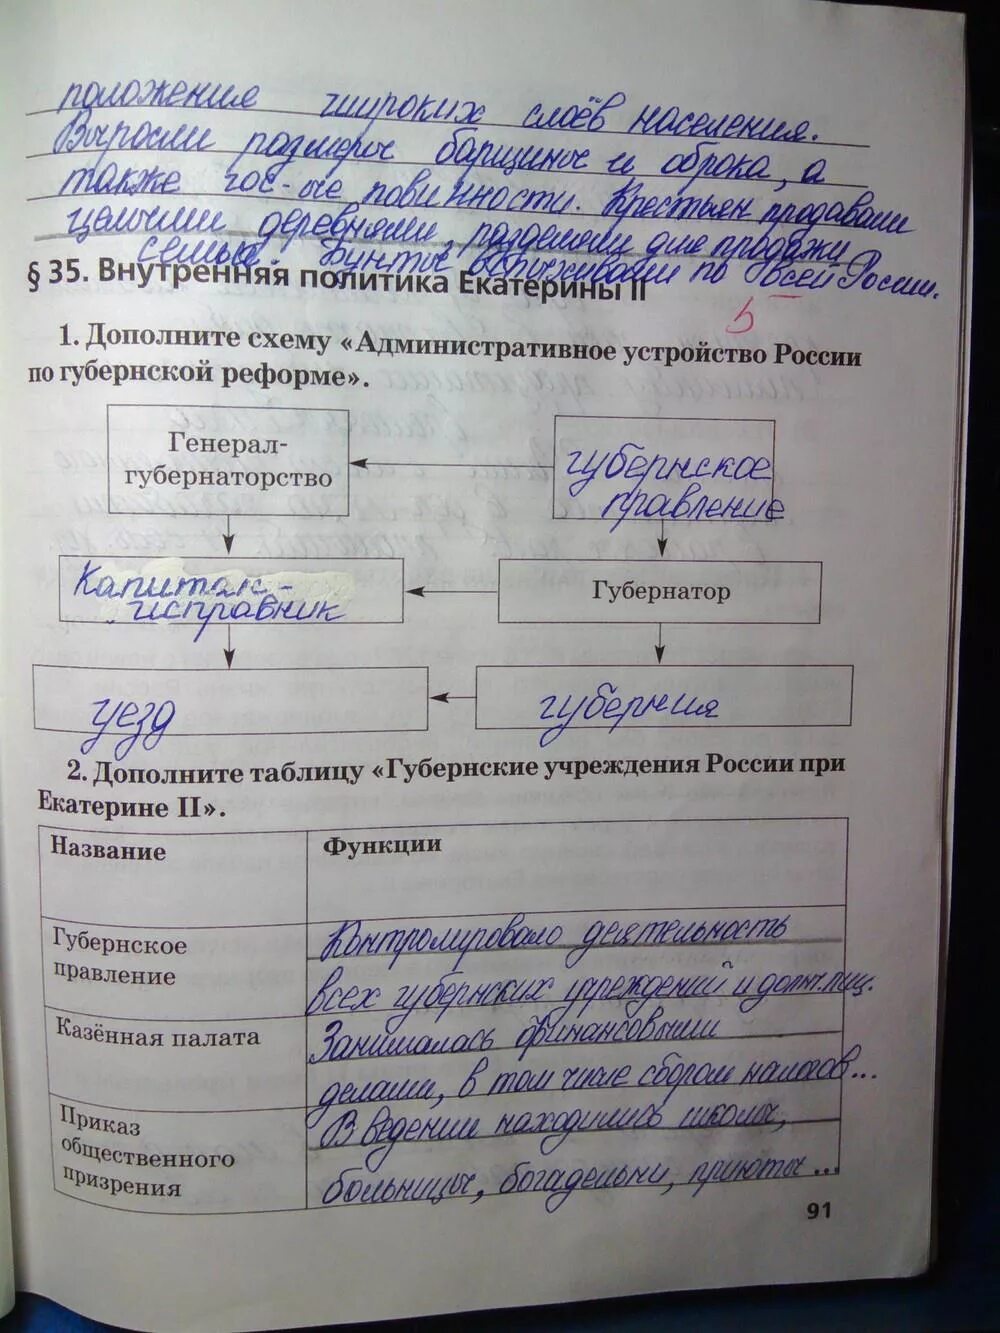 положение широких слоёв населения.
Выросли размеры барщины и оброка, а
также гос-ые повинности. Крестьян продавали
целыми деревнями, разделяли для продажи
семьи. Бунты вспыхивали по всей России.
§ 35. Внутренняя политика Екатерины II
5
1. Дополните схему «Административное устройство России
по губернской реформе».
Генерал-
губернаторство
губернское
правление
Капитан-
исправник
Губернатор
уезд
губерния
2. Дополните таблицу «Губернские учреждения России при
Екатерине II».
Название
Функции
Губернское
правление
Контролировало деятельность
всех губернских учреждений и долж. лиц.
Казённая палата
Занималась финансовыми
делами, в том числе сбором налогов...
Приказ
общественного
призрения
В ведении находились школы,
больницы, богадельни, приюты...
91